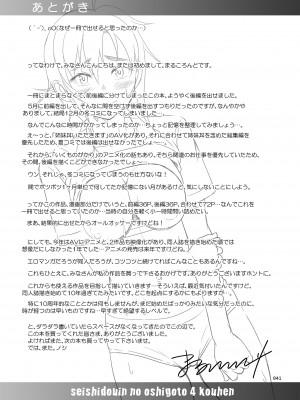 あとがき
(´-`).｡oO(なぜ一冊で出せると思ったのか…)
ってなわけで、みなさんこんにちは、または初めまして、まるころんどです。
一冊にまとまらなくて、前後編に分けてしまったこの本、ようやく後編を出せました。
5月に前編を出して、そんなに間を空けず後編を出すつもりだったのですが、なんやかや
ありまして、結局12月の冬コミになってしまいました…
なんでこんなに時間がかかってしまったのか…ちょっと記憶を整理してみましょう…
優先したため、夏コミでは後編は出せなかったでしょ…
それから、「いくものがかり」のアニメ化の話もあり、そちら関連のお仕事を優先していたため、
その間、後編を描くことができなかったでしょ〜…
ウン それじゃ、冬コミになってしまうのも仕方ないな！
間でポツポツ1ヶ月単位で何してたか記憶にない月があるけど、気にしないことにしよう。
ってかこの作品、漫画部分だけでいうと、前編36P、後編36P、合わせて72P…なんでこれを
一冊で出せると思っていたのか…当時の自分を軽く小一時間問い詰めたい。
まあ、結果的に出せたからオールオッケーですけどね！
にしても、今年はAVにアニメと、2作品も映像化があり、同人誌を描き始めた頃では
想像だにしなかった1年でした…アニメの発売は来年ですけどね！
エロマンガだろうが何だろうが、コツコツと続けてればこんなこともあるんですね。
これもひとえに、みなさんが私の同人誌を買って下さるおかげです、ありがとうございますホントに。
これからも使える作品を目指して描いていきます…そういえば、最近気付いたんですけど、
同人誌描き始めて10年過ぎてたみたいです、どこを起点にするかにもよりますが…
特に10周年的なこととかは何もしませんが、まだ始めたばっかりみたいな気分だったのに、
時が経つのは早いものですね…早すぎて絶望するレベルで。
と、ダラダラ書いていたらスペースがなくなってきたのでこの辺で。
この本を買ってくれた皆さま、ありがとうございました。
よければまた、次の本も買ってやって下さい。
では、また。ノシ
041
seishidouin no oshigoto 4 kouhen